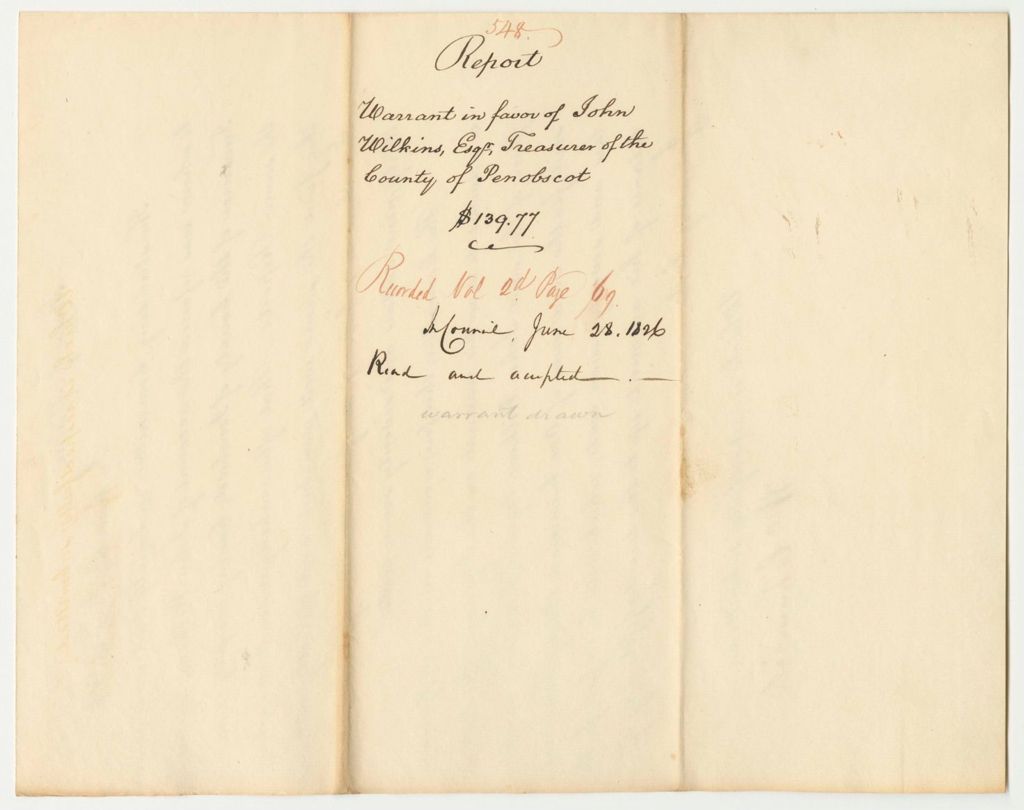 548.
Report
Warrant in favor of John
Wilkins, Esqr, Treasurer of the
County of Penobscot
$139.77
Recorded Vol 2d Page 69.
In Council, June 28. 1826
Read and accepted
warrant drawn